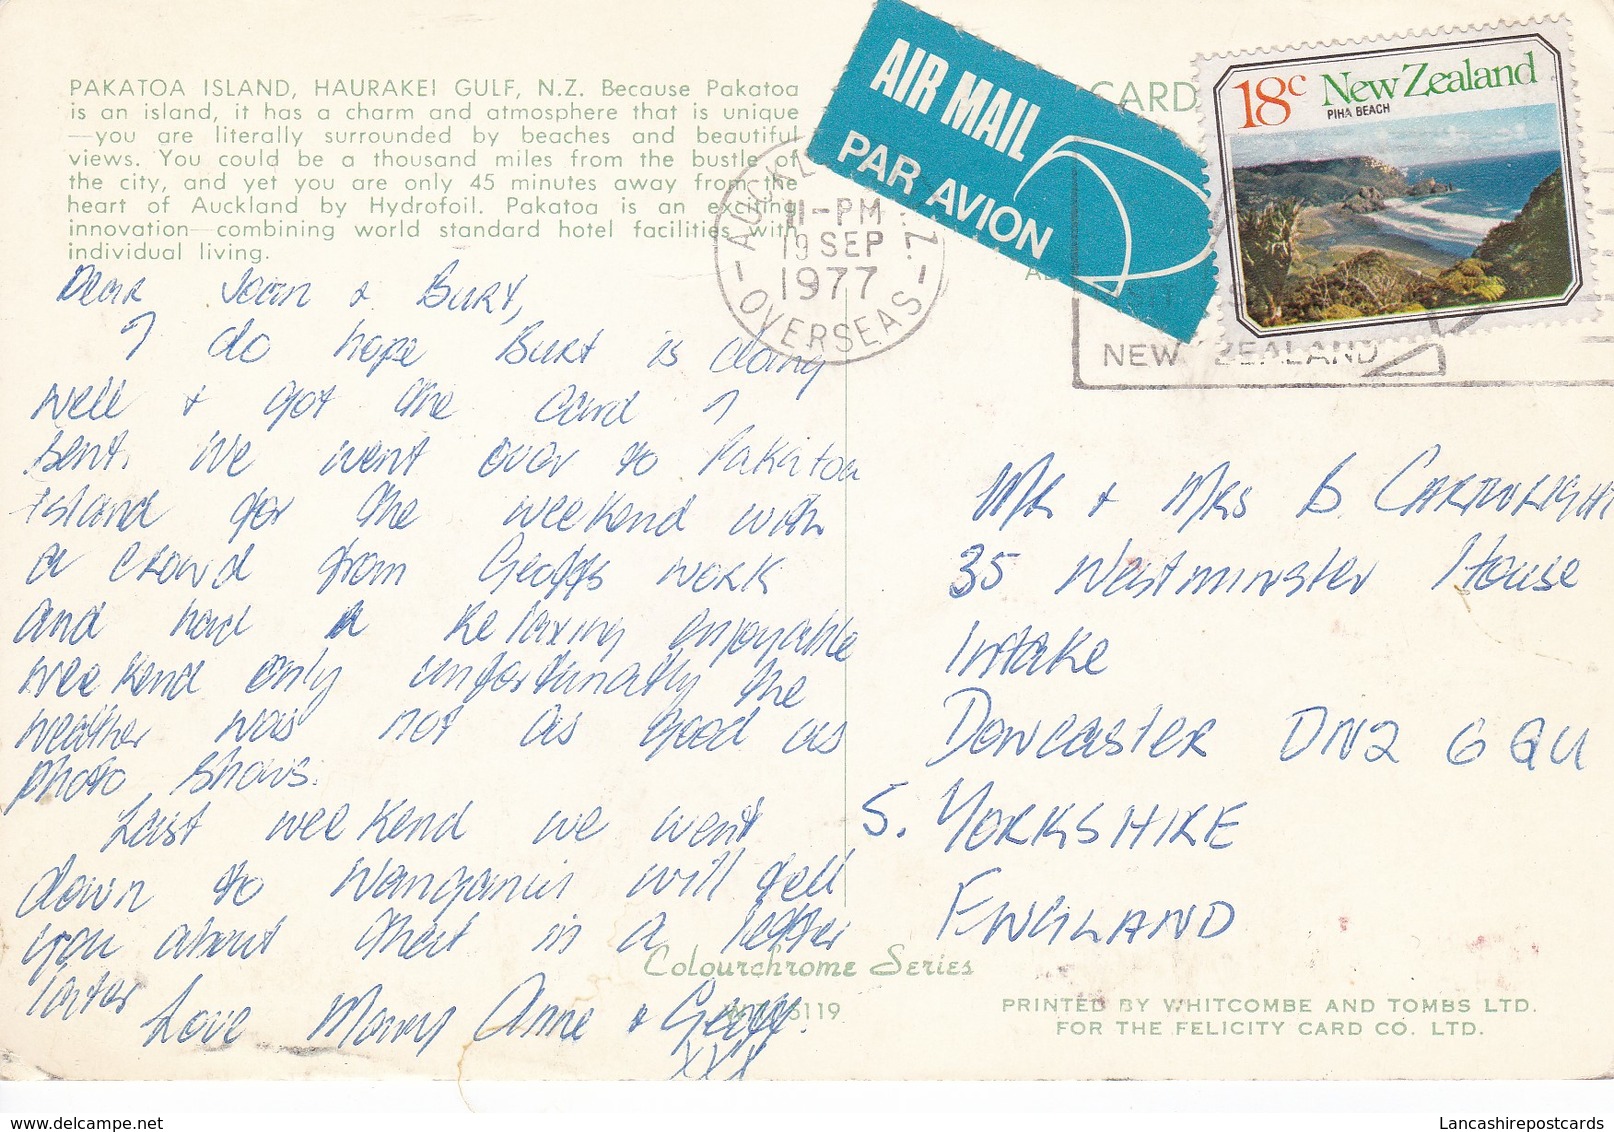 PAKATOA ISLAND, HAURAKEI GULF, N.Z. Because Pakatoa
is an island, it has a charm and atmosphere that is unique
—you are literally surrounded by beaches and beautiful
views. You could be a thousand miles from the bustle of
the city, and yet you are only 45 minutes away from the
heart of Auckland by Hydrofoil. Pakatoa is an exciting
innovation—combining world standard hotel facilities with
individual living.
Dear Joan & Burt,
I do hope Burt is doing
well & got the card I
sent. We went over to Pakatoa
Island for the weekend with
a crowd from Geoffs work
and had a relaxing enjoyable
weekend only unfortunatly the
weather was not as good as
photo shows.
Last weekend we went
down to Wanganui will tell
you about that in a letter
later
Love Mary Anne & Geoff.
XXX
AIR MAIL
PAR AVION
CARD
18c New Zealand
PIHA BEACH
11-PM
19 SEP
1977
OVERSEAS
NEW ZEALAND
Mr & Mrs B. CARTWRIGHT
35 Westminster House
Intake
Doncaster DN2 6QU
S. YORKSHIRE
ENGLAND
Colourchrome Series
5119
PRINTED BY WHITCOMBE AND TOMBS LTD.
FOR THE FELICITY CARD CO. LTD.
www.delcampe.net
Lancashirepostcards